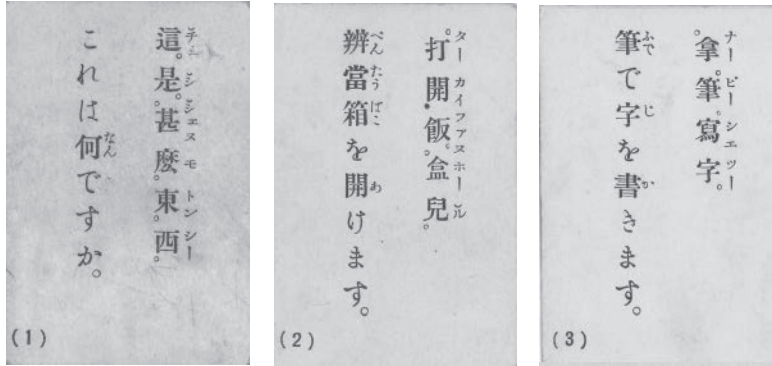 這是甚麼東西。
チーシシェヌモトンシー
これは何ですか。
なん
(1)
打開飯盒兒。
ターカイファヌホール
辨當箱を開けます。
べんたうばこ あ
(2)
拿筆寫字。
ナービーシェツー
筆で字を書きます。
ふで じ か
(3)